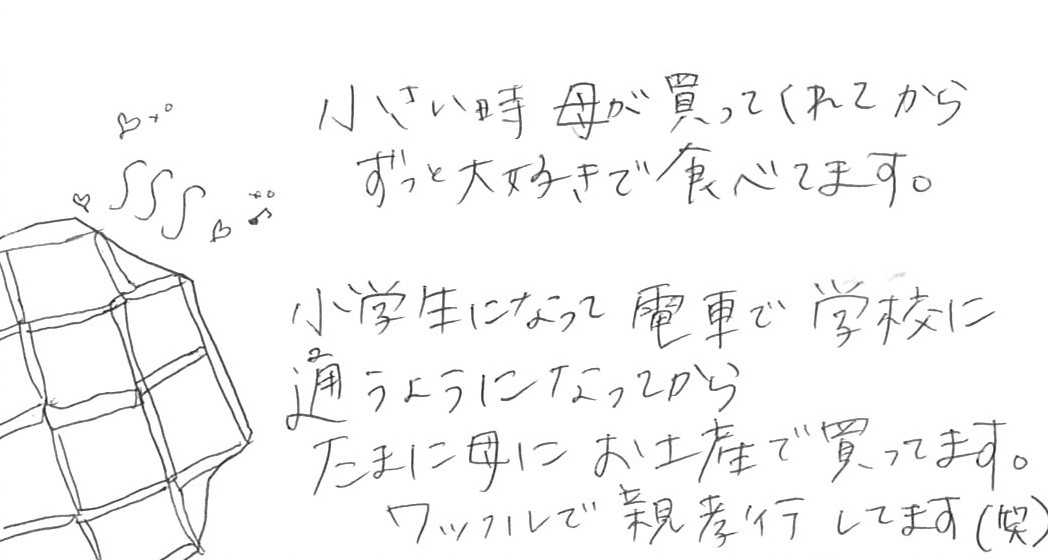 小さい時 母が買ってくれてから
ずっと大好きで食べてます。
小学生になって電車で学校に
通うようになってから
たまに母にお土産で買ってます。
ワッフルで親孝行してます(笑)